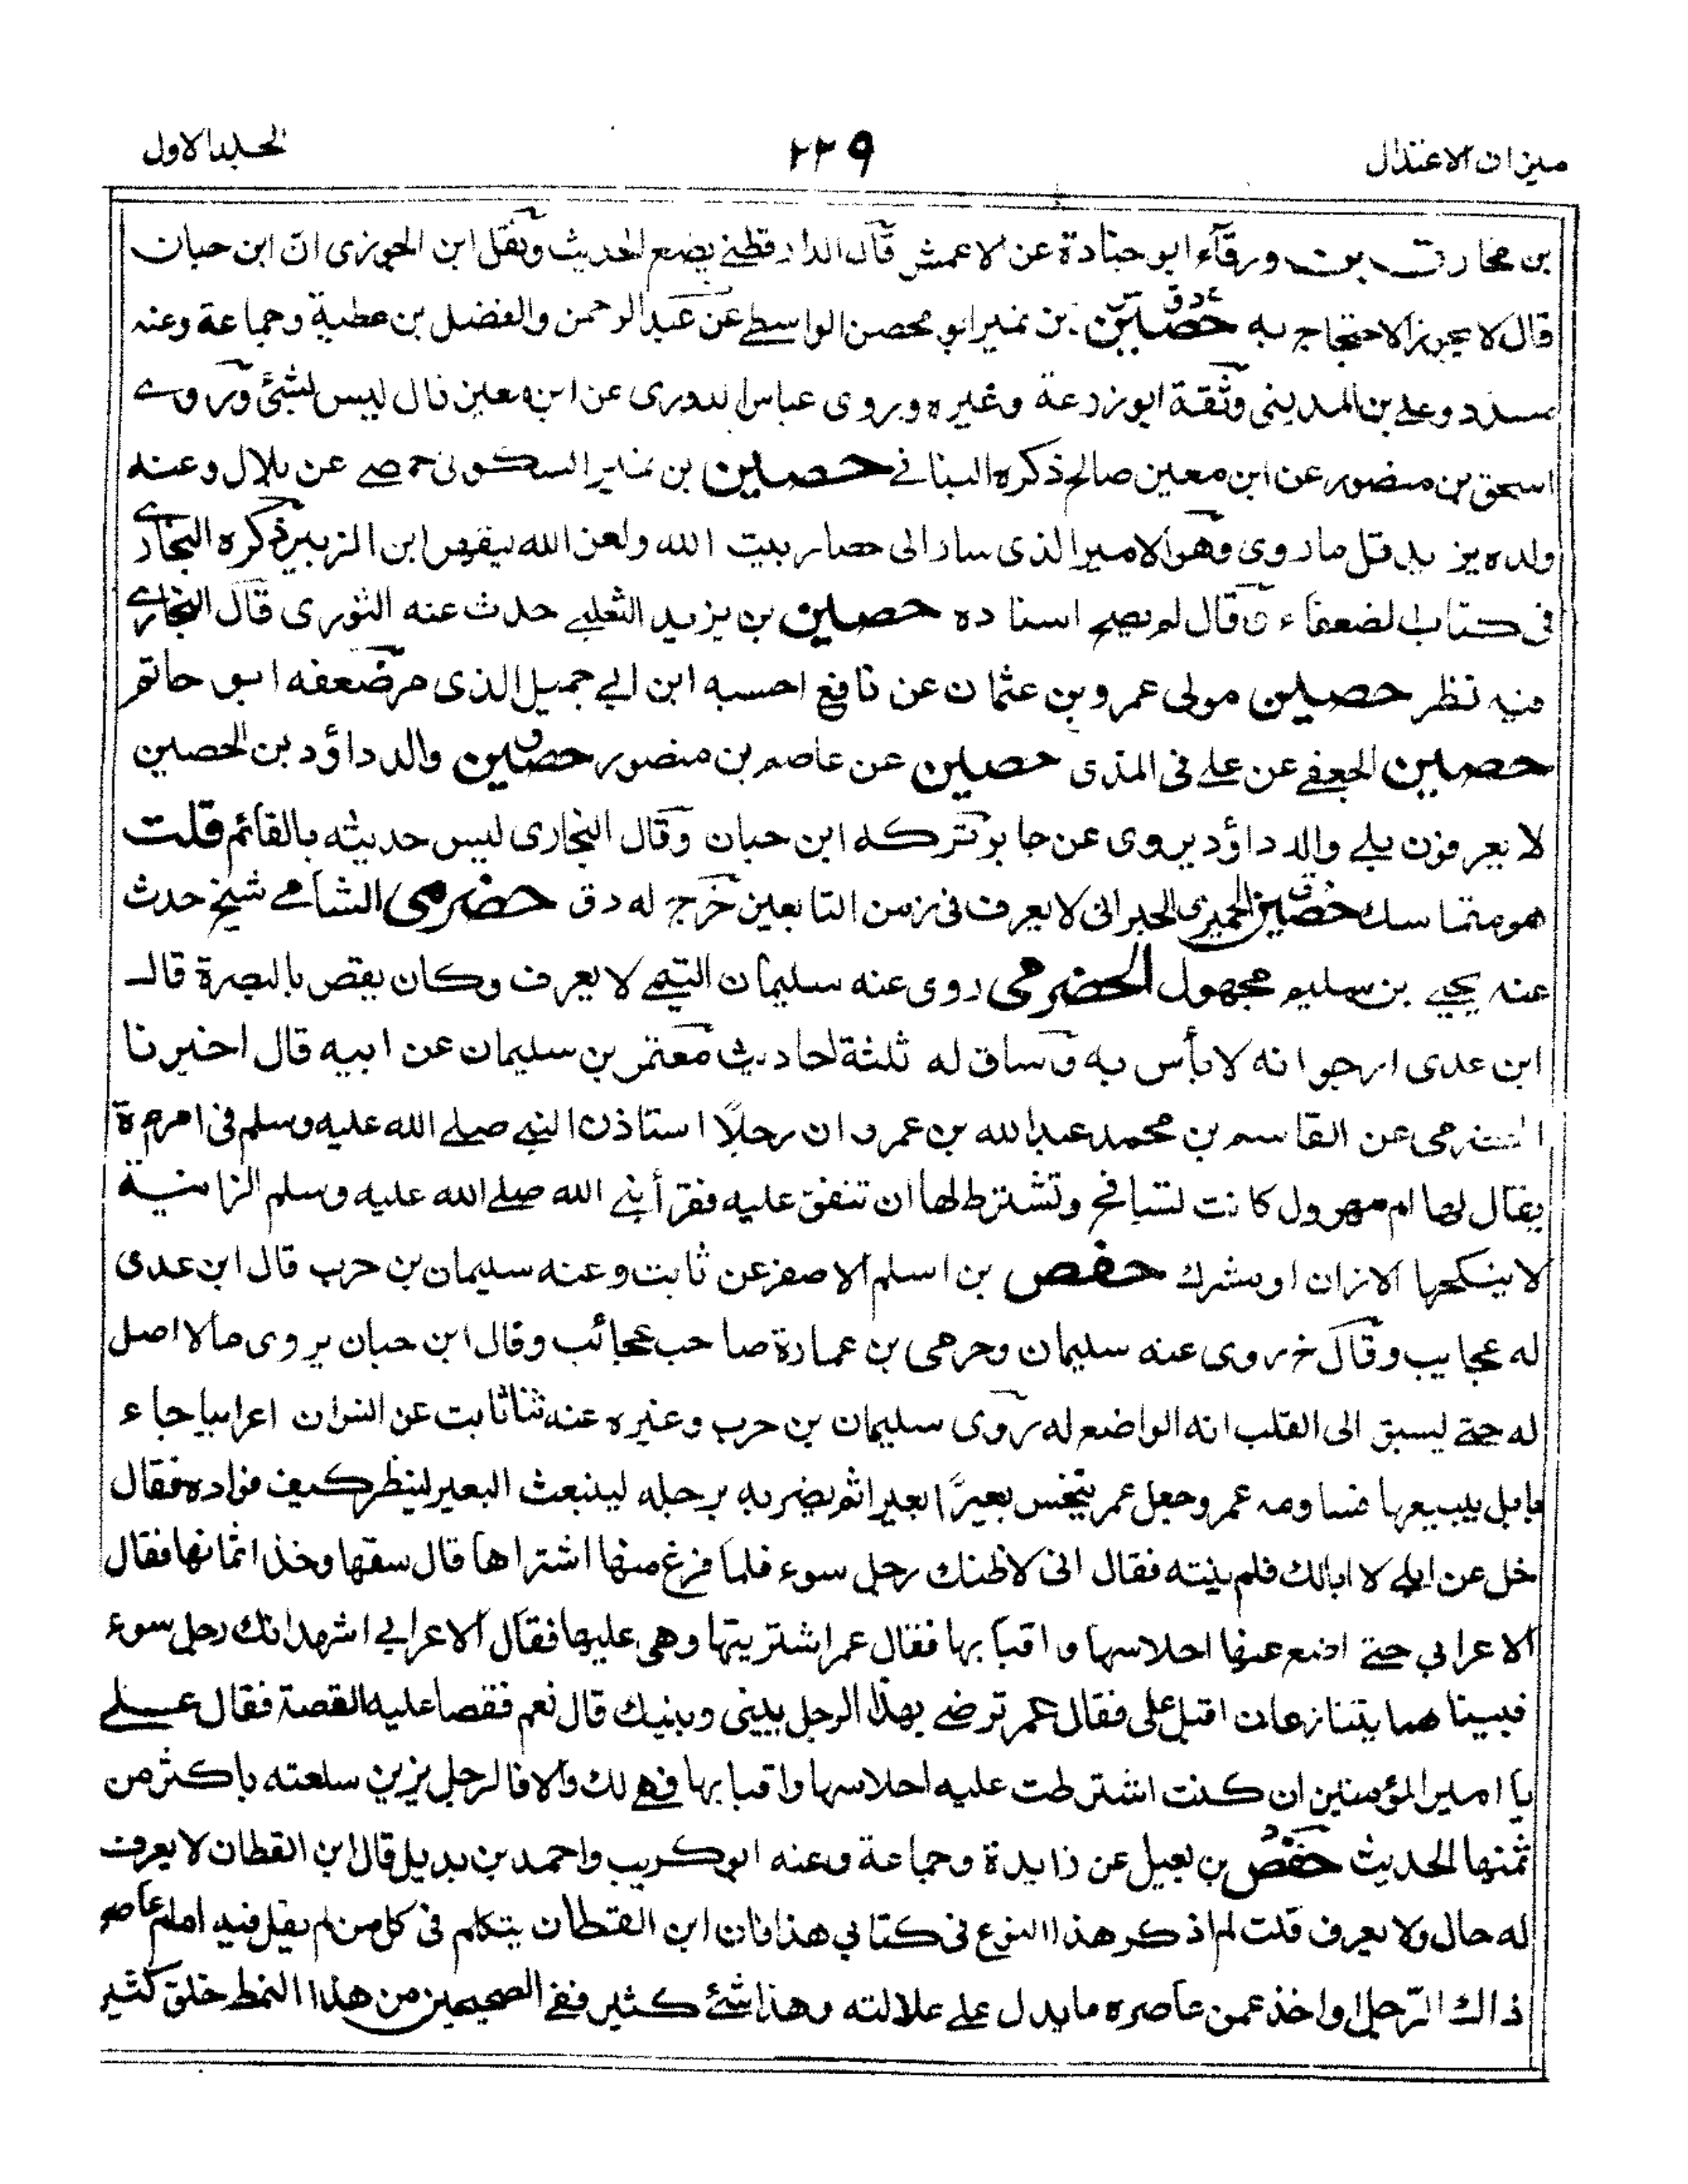 ميزان الاعتدال
٢٢٩
الجلد الاول
بن مخارق بن ورقآء ابو جنادة عن الاعمش قال الدارقطني يضع الحديث ونقل ابن الجوزى ان ابن حبان
قال لا يجوز الاحتجاج به حصين بن نمير ابو محصن الواسطے عن حصين بن عبد الرحمن والفضل بن عطية وجماعة وعنه
مسدد وعلے بن المدينى وثقة ابو زرعة وغيره وروى عباس الدورى عن ابن معين قال ليس بشئ وروے
اسحق بن منصور عن ابن معين صالح ذكره البنانے حصين بن نمير السكونى حمصے عن بلال وعنه
ولده يزيد قل ما روى وهو الامير الذى سار الى حصار بيت الله ولعن الله ابن الزبير ذكره البخارے
فى كتاب الضعفاء وقال لم يصح اسناده حصين بن يزيد الثعلبے حدث عنه الثورى قال البخارے
فيه نظر حصين مولى عمرو بن عثمان عن نافع احسبه ابن ابي جميل الذى مر ضعفه ابو حاتم
حصين الجعفے عن علے فى المذى حصين عن عاصم بن منصور حصين والد داؤد بن الحصين
لا يعرفون بلے والد داؤد يروى عن جابر تركه ابن حبان وقال البخارى ليس حديثه بالقائم قلت
هو متماسك حصين الحميرى الحبرانى لا يعرف فى زمن التابعين خرج له دق حضرمى الشامے شيخ حدث
عنه يحيے بن سليم مجهول الحضرمى روى عنه سليمان التيمے لا يعرف وكان يقص بالبصرة قال
ابن عدى ارجوا انه لا بأس به وساق له ثلثة احاديث معتمر بن سليمان عن ابيه قال اخبرنا
الحضرمى عن القاسم بن محمد عبد الله بن عمرو ان رجلًا استاذن النبے صلے الله عليه وسلم فى امرءة
يقال لها ام مهزول كانت تسافح وتشترط لها ان تنفق عليه فقرأ نبے الله صلے الله عليه وسلم الزانية
لا ينكحها الا زان او مشرك حفص بن اسلم الاصفر عن ثابت وعنه سليمان بن حرب قال ابن عدى
له عجايب وقال خ روى عنه سليمان وحرمى بن عمارة صاحب عجائب وقال ابن حبان يروى ما لا اصل
له حتے ليسبق الى القلب انه الواضع له روى سليمان بن حرب وغيره عنه ثنا ثابت عن انس ان اعرابيا جاء
بابل يبيعها فساومه عمر وجعل عمر ينخس بعيرًا بعيرا ثم يضربه برجله لينبعث البعير لينظر كيف فواده فقال
خل عن ابلے لا ابالك فلم ينته فقال انى لاظنك رجل سوء فلما فرغ منها اشتراها قال سقها وخذ اثمانها فقال
الاعرابي حتے اضع عنها احلاسها واقتابها فقال عمر اشتريتها وهى عليها فقال الاعرابي اشهد انك رجل سوء
فبينا هما يتنازعان اقبل على فقال عمر ترضے بهذا الرجل بينى وبينك قال نعم فقصا عليه القصة فقال علے
يا امير المؤمنين ان كنت اشترطت عليه احلاسها واقتابها فهے لك والا فالرجل يزين سلعته باكثر من
ثمنها الحديث حفص بن بغيل عن زايدة وجماعة وعنه ابو كريب واحمد بن بديل قال ابن القطان لا يعرف
له حال ولا يعرف قلت لم اذكر هذا النوع فى كتابي هذا فان ابن القطان يتكلم فى كل من لم يقل فيه امام عاصر
ذاك الرجل او اخذ عمن عاصره ما يدل علے عدالته وهذا شئ كثير ففے الصحيحين من هذا النمط خلق كثير